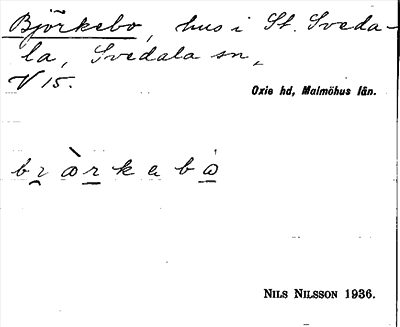 Björkebo, hus i St. Sveda-
la, Svedala sn,
V 15.
Oxie hd, Malmöhus län.
NILS NILSSON 1936.